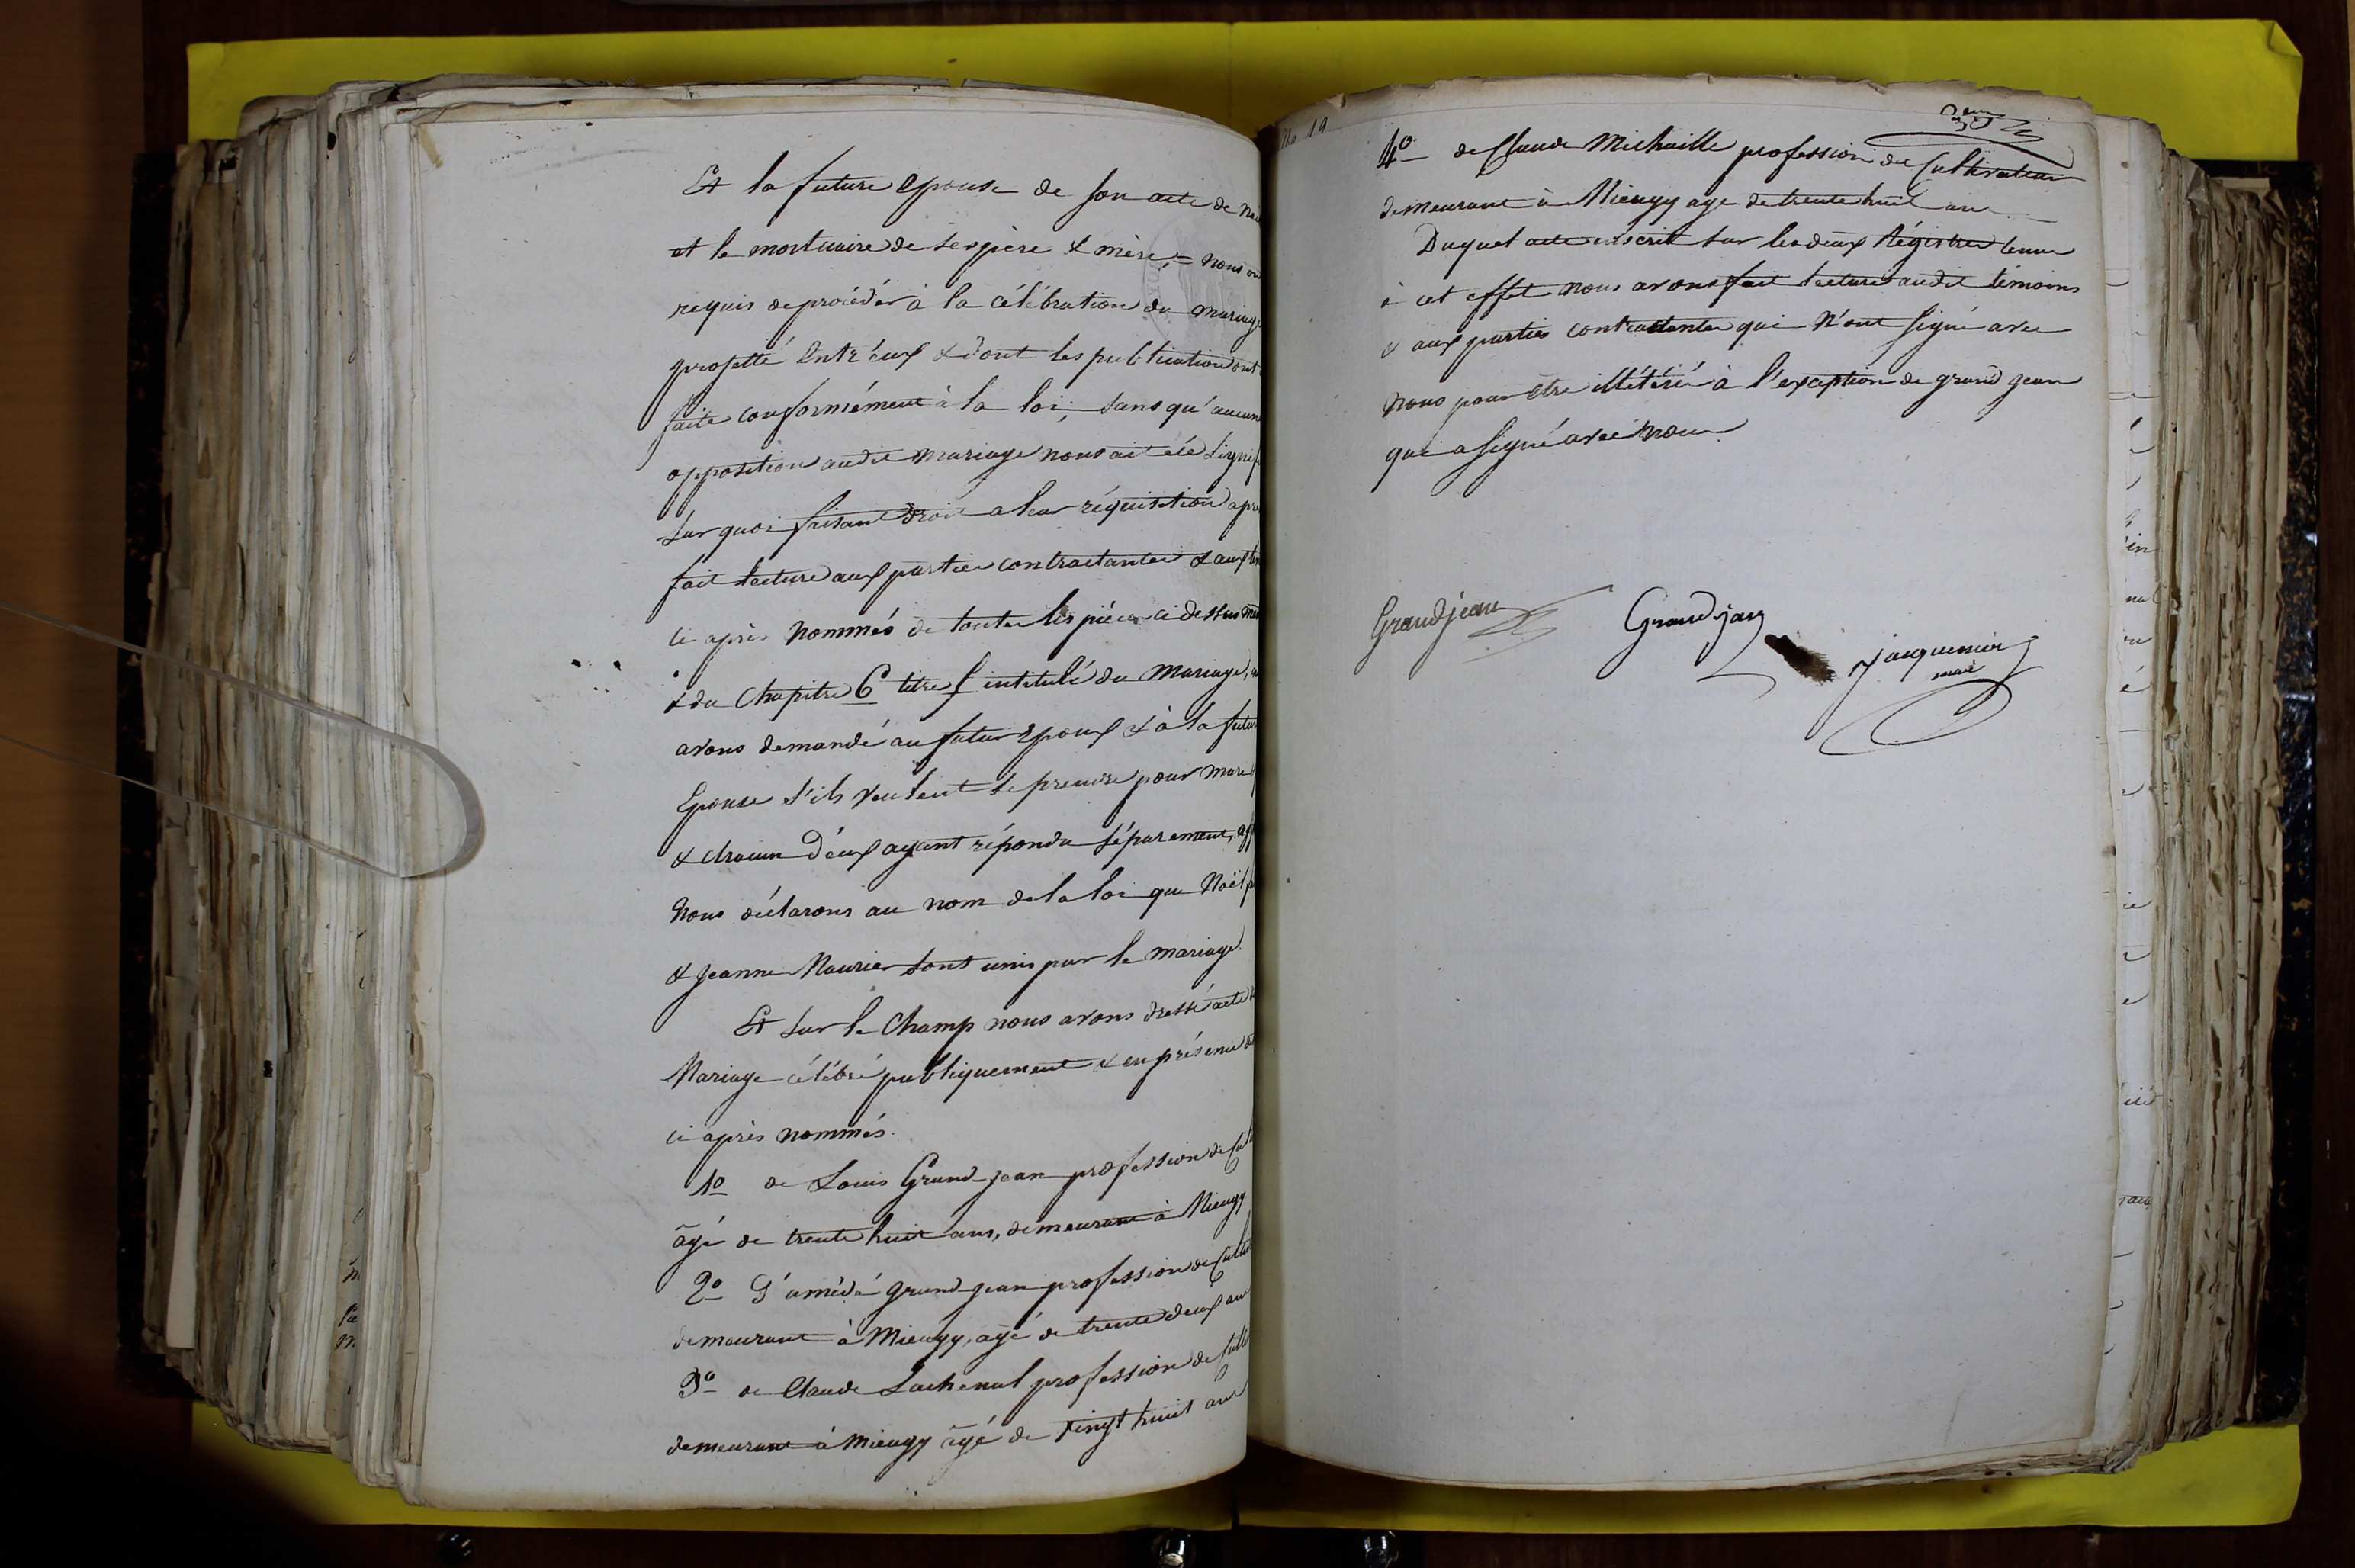 Et la future Epouse de son acte de
et le mortuaire de ses père & mère, = nous
requis de procéder à la célébration du mariage
projetté Entr'eux & dont les publications ont
faite conformément à la loi, sans qu'aucune
opposition audit mariage nous ait été
Sur quoi faisant droit a leur réquisition
fait lecture aux parties contractantes & aux
ci après nommés de toutes les pièces ci dessus
& du Chapitre 6 titre intitulé du Mariage,
avons demandé au futur Epoux & à la future
Epouse s'ils veulent se prendre pour mari
& chacun d'eux ayant répondu séparement,
Nous déclarons au nom de la loi que Noël
& Jeanne Maurier sont unis par le mariage.
Et sur le Champ nous avons dressé acte
Mariage célébré publiquement & en présence
ci après nommés.
1o de Louis Grand-jean profession de
âgé de trente huit ans, demeurant à Mieugy
2o d'amédé grand jean profession de
demeurant à Mieugy, agé de trente deux ans
3o de Claude Lachenal profession de
demeurant à mieugy âgé de vingt huit ans
No 19
4o de Claude Michaille profession de Cultivateur
demeurant à Mieugy age de trente huit ans
Duquel acte inscrit sur les deux Régistres tenus
à cet effet nous avons fait lecture audit témoins
& aux parties contractantes qui n'ont signé avec
nous pour être illétéré à l'exception de grand jean
qui a signé avec nous
Grandjean
Grandjan
Jacquemier
maire